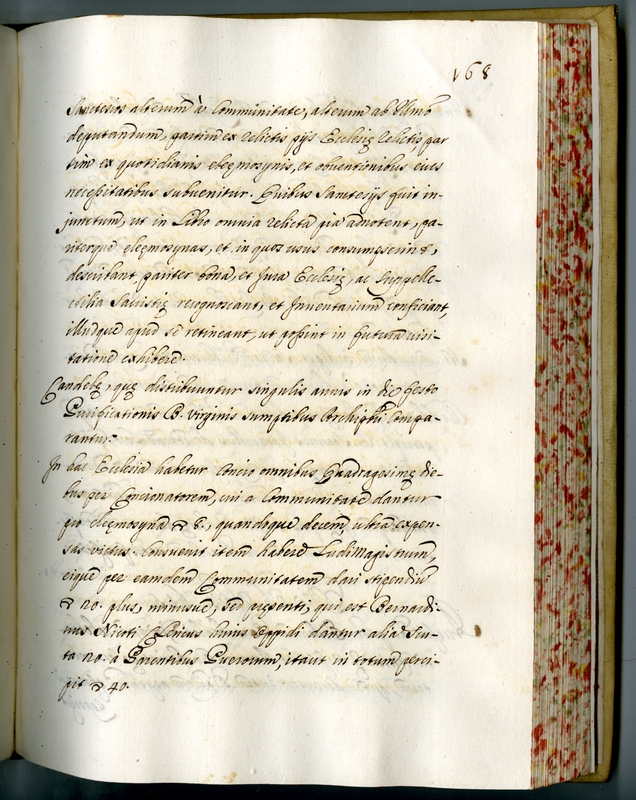 168
Santesios alterum à Communitate, alterum ab Illmo
deputandum partim ex relictis pijs Ecclesię relictis par
tim ex quotidianis eleęmosynis, et obuentionibus eius
necessitatibus subuenitur. Quibus Santesijs fuit in-
junctum, ut in Libro omnia relicta pia adnotent, pa-
riterque eleęmosynas, et in quos usus consumpserint,
describant pariter bona, et Jura Ecclesię, ac suppelle-
ctilia Sacristię recognoscant, et Inuentarium conficiant,
illudque apud se retineant, ut possint in futura uisi-
tatione exhibere.
Candelę, quę distribuuntur singulis annis in die festo
Purificationis B. Virginis sumptibus Archipbri Compa-
rantur.
In hac Ecclesia habetur Concio omnibus Quadragesimę die-
bus per Concionatorem, cui a Communitate dantur
pro eleęmosyna 8, quandoque decem, ultra expen-
sas uictus. Consueuit item habere Ludimagistrum,
eique per eamdem Communitatem dari stipendiũ
20. plus, minusue, sed pręsenti, qui est Bernardi-
nus Clericus huius oppidi dantur alia scu-
ta 20. à Parentibus Puerorum, itaut in totum perci-
pit 40.